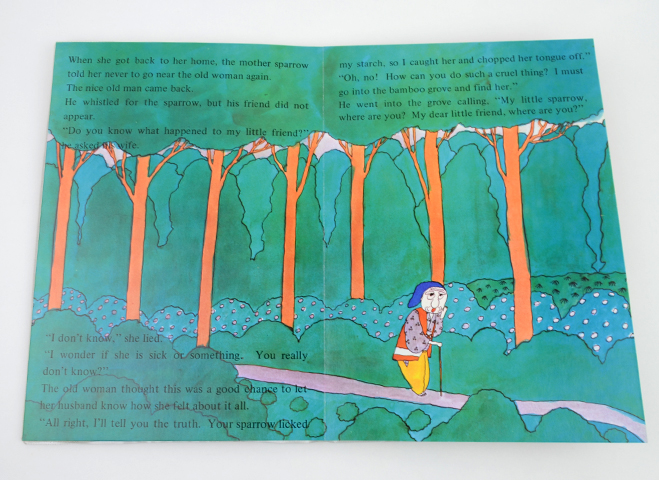 When she got back to her home, the mother sparrow
told her never to go near the old woman again.
The nice old man came back.
He whistled for the sparrow, but his friend did not
appear.
"Do you know what happened to my little friend?"
he asked his wife.
"I don't know," she lied.
"I wonder if she is sick or something. You really
don't know?"
The old woman thought this was a good chance to let
her husband know how she felt about it all.
"All right, I'll tell you the truth. Your sparrow licked
my starch, so I caught her and chopped her tongue off."
"Oh, no! How can you do such a cruel thing? I must
go into the bamboo grove and find her."
He went into the grove calling, "My little sparrow,
where are you? My dear little friend, where are you?"